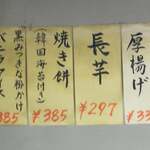 厚揚げ
¥33
長芋
¥297
焼き餅
(韓国海苔付き)
¥385
黒みつきな粉かけ
バニラアイス
385